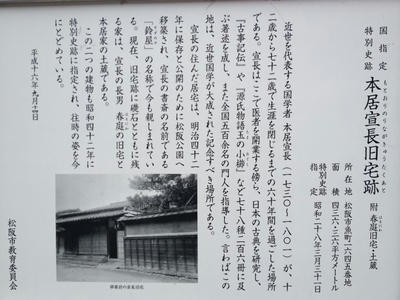 国指定
特別史跡
本居宣長旧宅跡
もとおりのりながきゅうたくあと
附 春庭旧宅・土蔵
はるにわ
所在地 松阪市魚町一六四五番地
面積 四三六・三六平方メートル
特別史跡
指定 昭和二十八年三月三十一日
近世を代表する国学者 本居宣長(一七三〇~一八〇一)が、十
二歳から七十二歳で生涯を閉じるまでの六十年間を過ごした場所
である。宣長はここで医者を開業する傍ら、日本の古典を研究し、
『古事記伝』や『源氏物語玉の小櫛』など七十八種二百六冊に及
ぶ著述を成し、また全国五百余名の門人を指導した。言わばこの
地は、近世国学が大成された記念すべき場所である。
宣長の住んだ居宅は、明治四十二
年に保存と公開のために松阪公園へ
移築され、宣長の書斎の名前である
「鈴屋」の名称で今も親しまれてい
る。現在、旧宅跡に礎石とともに残
る家は、宣長の長男 春庭の旧宅と
本居家の土蔵である。
この二つの建物も昭和四十二年に
特別史跡に指定され、往時の姿を今
にとどめている。
平成十六年九月二日
移築前の宣長旧宅
松阪市教育委員会